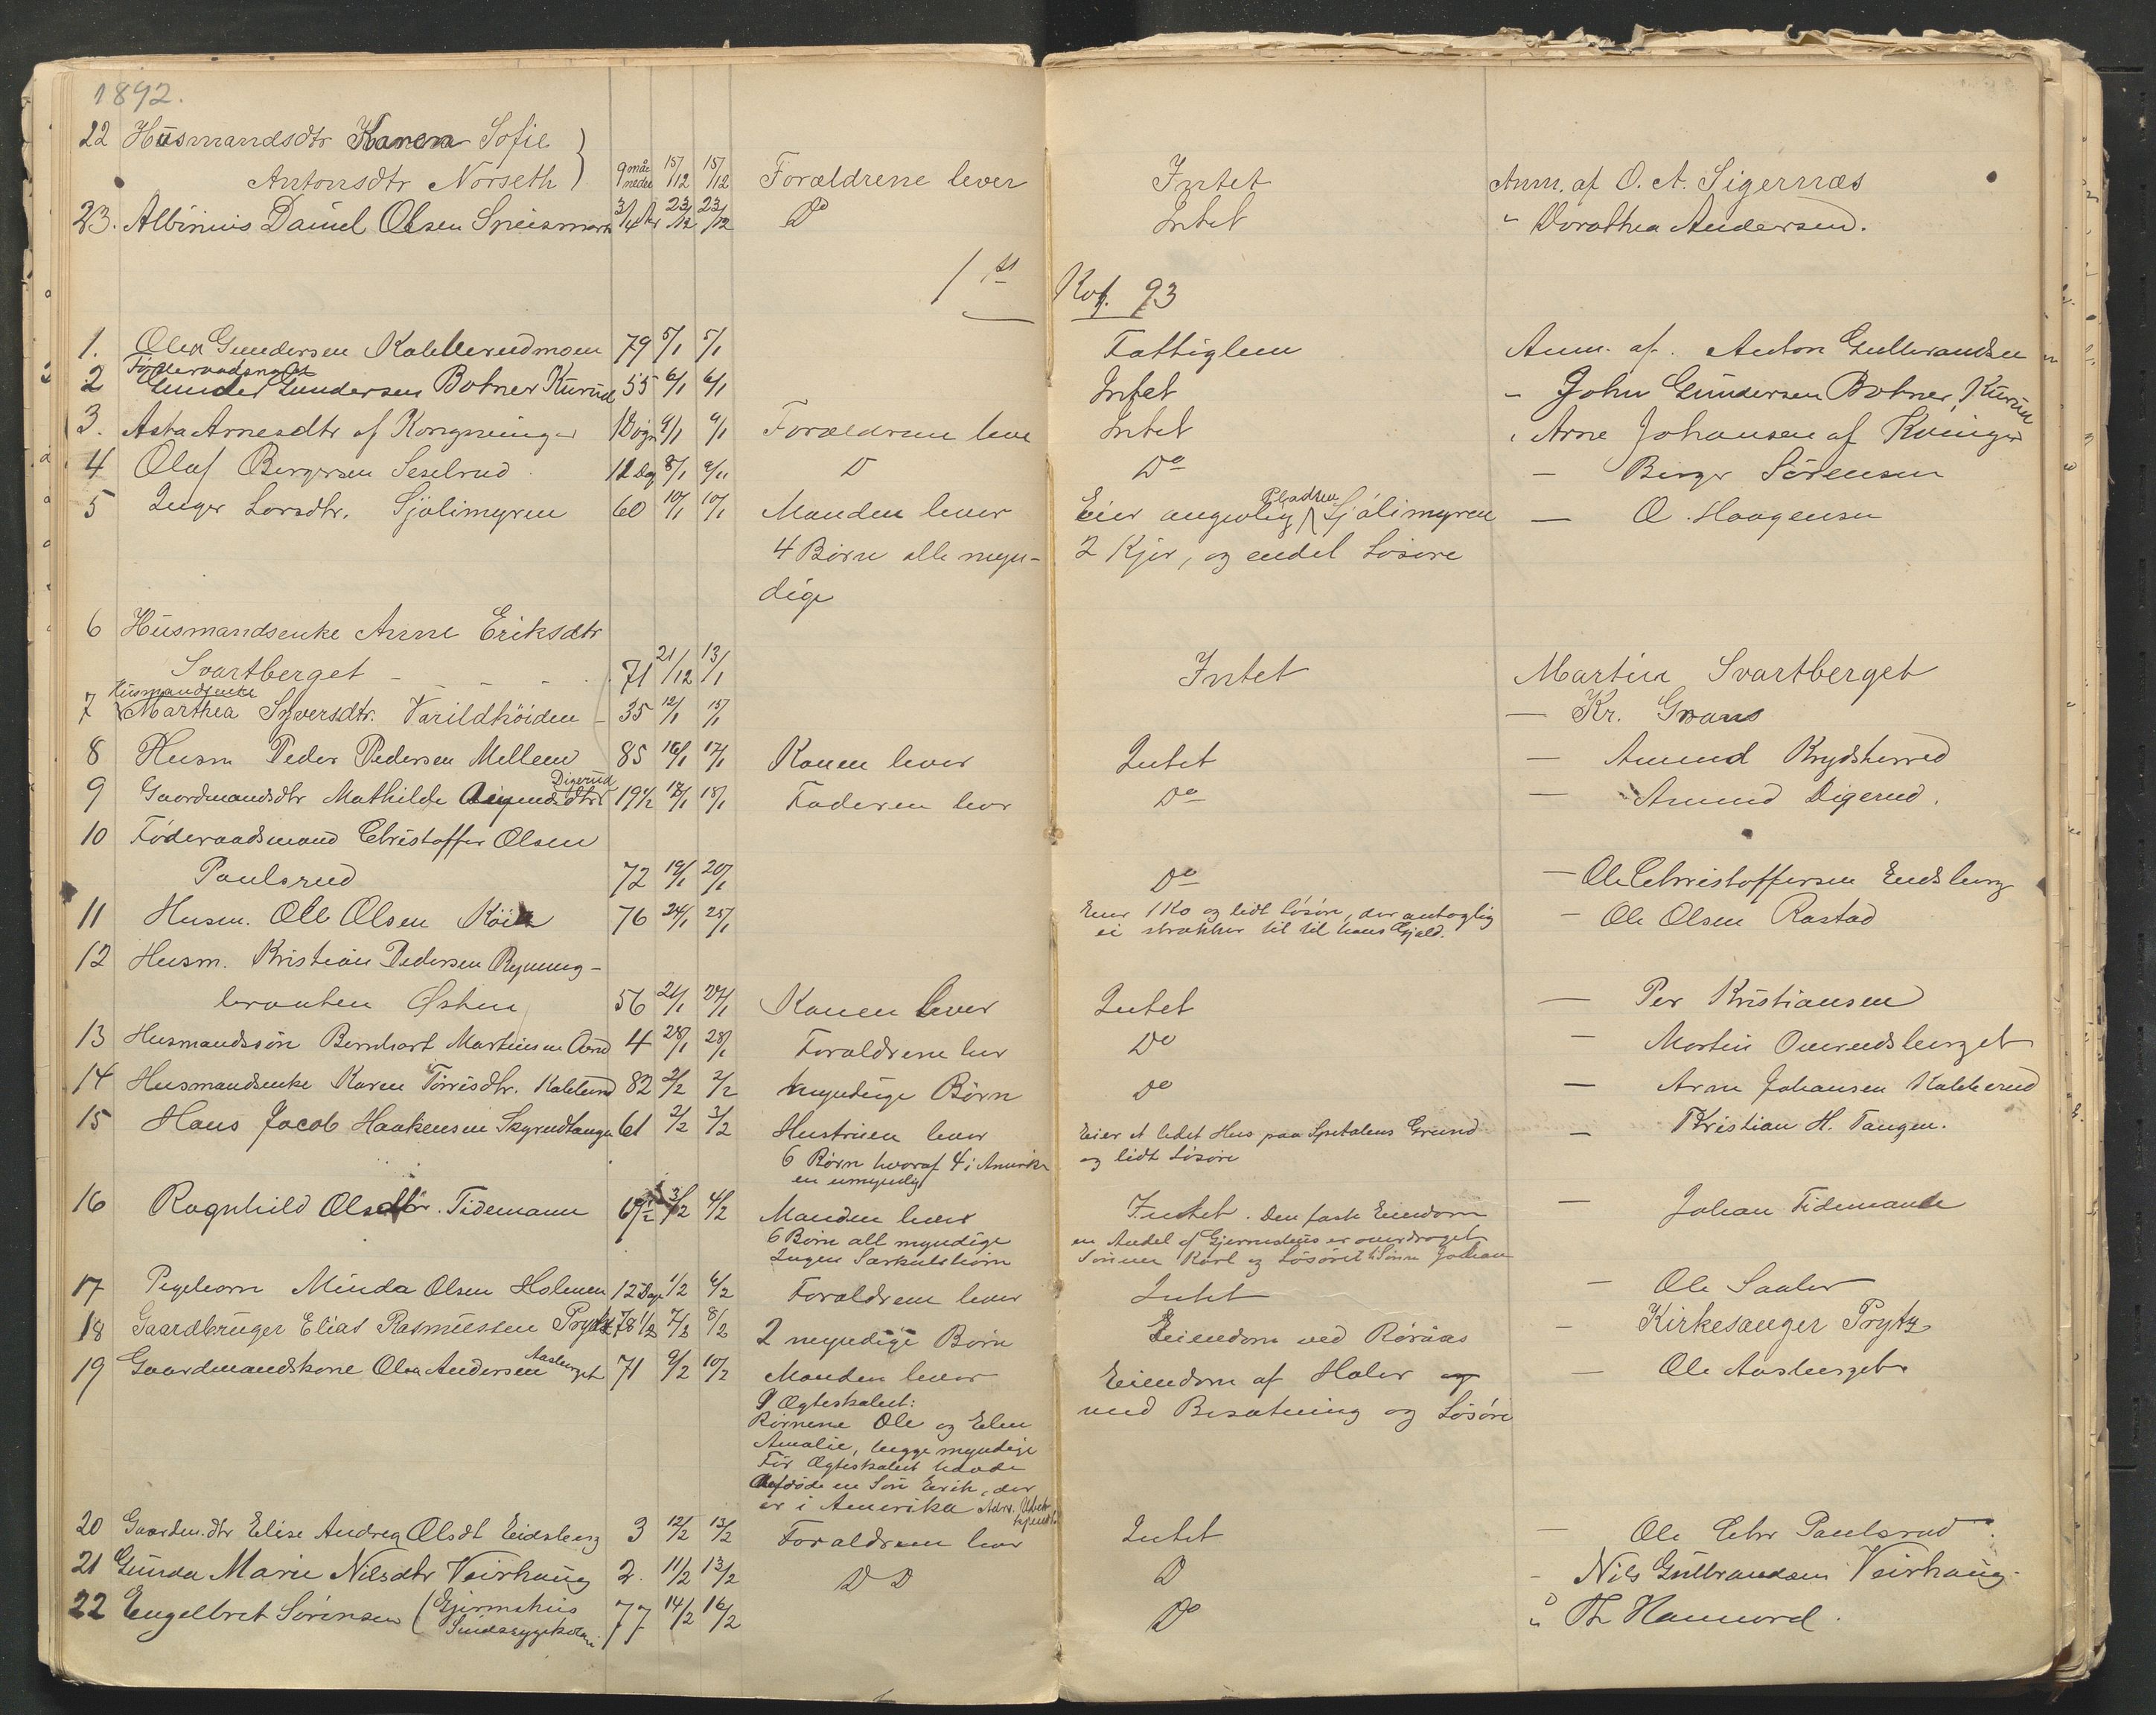 1892.
22 Husmandsdtr Karen Sofie
Antonsdtr Norseth 9 måneder 15/12 15/12 Forældrene lever Intet Anm. af O. A. Sigernæs
23. Albinius Daniel Olsen 3/4 Aar 23/12 23/12 Do Intet " Dorothea Andersen.
1st Kof. 93
1. Olea Gundersen Kobberudmoen 79 5/1 5/1 Fattiglem Anm. af. Anton Gulbrandsen
Føderaadsmand
2 Gunder Gundersen Botner Kurud 55 6/1 6/1 Intet - John Gundersen Botner, Kurud
3. Asta Arnesdtr af Kongsvinger 1 Døgn 9/1 9/1 Forældrene leve Intet " Arne Johansen af Kvinger
4 Olaf Bergersen Seselrud 12 Dag 8/1 9/1 D Do - Birger Sørensen
5 Inger Larsdtr. Sjølimyren 60 10/1 10/1 Manden lever Eier angivelig Pladsen Sjølimyren - O. Haagensen
4 Børn alle myn- 2 Kjør, og endel Løsøre
dige
6 Husmandsenke Anne Eriksdtr
Svartberget - - - 71 21/12 13/1 Intet Martin Svartberget
Husmandsenke
7 Marthea Syversdtr. Varildhöiden - 35 12/1 15/1 - Kr. Grans
8 Husm Peder Pedersen Mellem 85 16/1 17/1 Konen lever Intet - Amund Krydsherred
9 Gaardmandsdtr Mathilde Amundsdtr Digerud 19 1/2 18/1 18/1 Faderen lever Do - Amund Digerud.
10 Føderaadsmand Christoffer Olsen
Paulsrud 72 19/1 20/1 Do - Ole Christoffersen Eidsberg
11 Husm. Ole Olsen 76 24/1 25/1 Eier 1 Ko og lidt løsøre, der antaglig - Ole Olsen Rastad
ei strækker til til hans Gjæld.
12 Husm. Kristian Pedersen Rynning-
braaten Østen 56 21/1 27/1 Konen lever Intet - Per Kristiansen
13 Husmandssøn Bernhart Martinsen 4 28/1 28/1 Forældrene lever Do - Martin Omrudsberget
14 Husmandsenke Karen Torrisdtr. Kobberud 82 2/2 2/2 myndige Børn do - Arne Johansen Kobberud
15 Hans Jacob Haakensen Skyrudtangen 61 2/2 3/2 Hustruen lever Eier et lidet Hus paa Spitalens Grund - Kristian H. Tangen.
6 Børn hvoraf 4 i Amerika og lidt Løsøre
en umyndig
16 Ragnhild Olsdtr. Tidemann 67 1/2 3/2 4/2 Manden lever Intet. Den faste Eiendom - Johan Tidemann
6 Børn all myndige en Andel af Gjermshus er overdraget
Ingen Særkulsbørn Sønnen Karl og Løsøret til Sønn Johan
17 Pigebarn Minda Olsen Holmen 12 Dage 1/2 6/2 Forældrene lever Intet - Ole Saaler
18 Gaardbruger Elias Rasmussen Prytz 78 1/2 7/2 8/2 2 myndige Børn Eiendom ved Røraas - Kirkesanger Prytz
19 Gaardmandskone Olea Andersen Aasberget 71 9/2 10/2 Manden lever Eiendom af Haler - Ole Aasberget
I Ægteskabet: med Besætning og Løsøre
Børnene Ole og Elen
Amalie, begge myndige
Før Ægteskabet havde
Afdøde en Søn Erik, der
er i Amerika Adrs. Ubekjendt
20 Gaardm.dtr Elise Andrea Olsdt Eidsberg 3 12/2 13/2 Forældrene lever Intet - Ole Chr Paulsrud.
21 Gunda Marie Nilsdtr Veirhaug 2. 11/2 13/2 D D D - Nils Gulbrandsen Veirhaug.
22 Engelbret Sørensen (Gjermshus 77 14/2 16/2 Do " Th Hammerd.
Sindssygekoloni